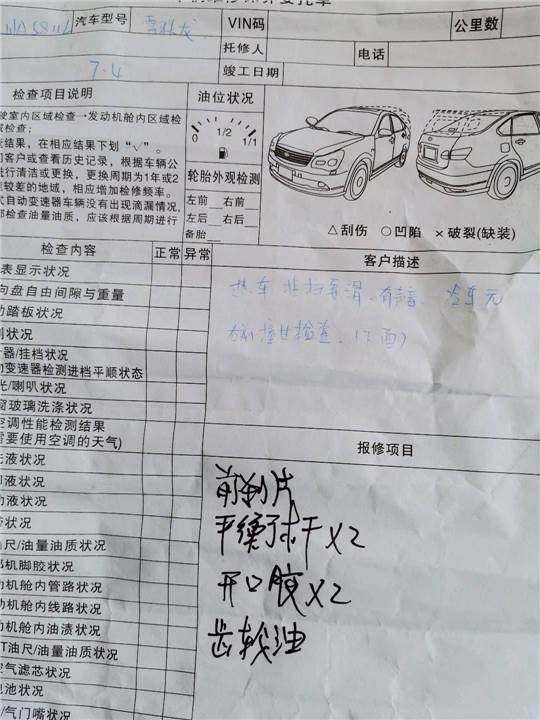 汽车型号 雪铁龙 VIN码 公里数
托修人 电话
7.4 竣工日期
检查项目说明 油位状况
驶室内区域检查→发动机舱内区域检
域检查;
结果，在相应结果下划“√”。
客户或查看历史记录，根据车辆公
进行清洁或更换，更换周期为1年或2
较差的地域，相应增加检修频率。
式自动变速器车辆没有出现滴漏情况,
部检查油量油质，应该根据周期进行
0 1/2 1/1
轮胎外观检测
左前 右前
左后 右后
备胎
△刮伤 ○凹陷 ×破裂(缺装)
检查内容 正常 异常 客户描述
表显示状况
向盘自由间隙与重量
动踏板状况
刹状况
器/挂档状况
变速器检测进档平顺状态
光/喇叭状况
窗玻璃洗涤状况
空调性能检测结果
需要使用空调的天气)
液状况
液状况
液状况
状况
尺/油量油质状况
机脚胶状况
动机舱内管路状况
动机舱内线路状况
动机舱内油渍状况
T油尺/油量油质状况
空气滤芯状况
电池状况
/气门嘴状况
热车 有声音
检查
报修项目
前刹片
平衡球干X2
开口膜X2
齿轮油